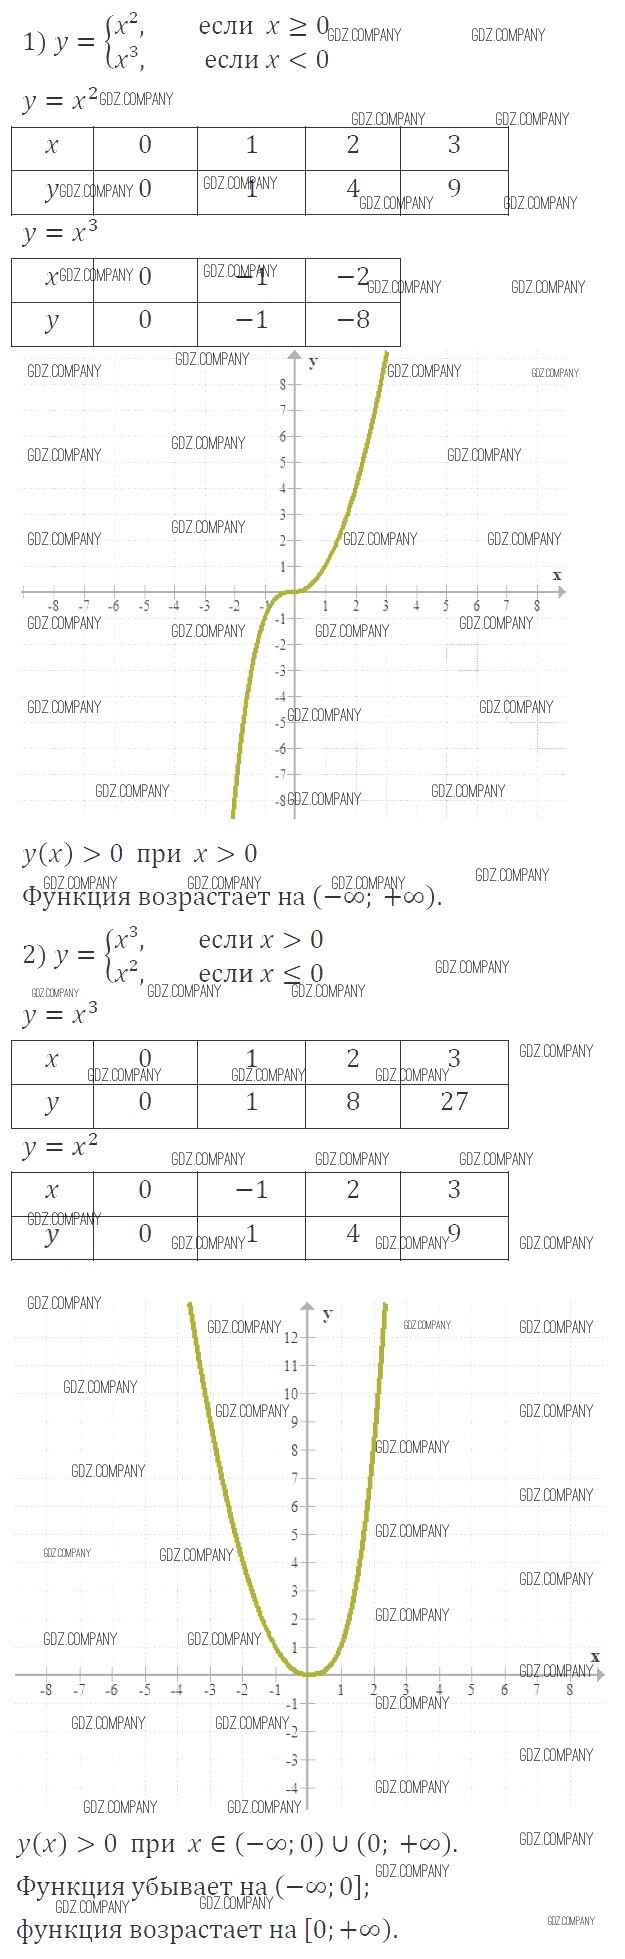 1) y = {x², если x ≥ 0
{x³, если x < 0
GDZ.COMPANY GDZ.COMPANY
y = x² GDZ.COMPANY
GDZ.COMPANY GDZ.COMPANY
x 0 1 2 3
y 0 1 4 9
GDZ.COMPANY GDZ.COMPANY GDZ.COMPANY GDZ.COMPANY
y = x³
x 0 −1 −2
GDZ.COMPANY GDZ.COMPANY GDZ.COMPANY GDZ.COMPANY
y 0 −1 −8
GDZ.COMPANY GDZ.COMPANY GDZ.COMPANY GDZ.COMPANY
y
8
7
6
GDZ.COMPANY GDZ.COMPANY GDZ.COMPANY
5
4
3
GDZ.COMPANY GDZ.COMPANY GDZ.COMPANY GDZ.COMPANY
2
1
x
-8 -7 -6 -5 -4 -3 -2 -1 1 2 3 4 5 6 7 8
GDZ.COMPANY GDZ.COMPANY GDZ.COMPANY GDZ.COMPANY
-1
-2
-3
-4
GDZ.COMPANY GDZ.COMPANY GDZ.COMPANY
-5
-6
-7
GDZ.COMPANY GDZ.COMPANY GDZ.COMPANY
-8
y(x) > 0 при x > 0
GDZ.COMPANY GDZ.COMPANY GDZ.COMPANY GDZ.COMPANY
Функция возрастает на (−∞; +∞).
2) y = {x³, если x > 0
{x², если x ≤ 0
GDZ.COMPANY
GDZ.COMPANY GDZ.COMPANY GDZ.COMPANY
y = x³
x 0 1 2 3
GDZ.COMPANY
GDZ.COMPANY GDZ.COMPANY GDZ.COMPANY
y 0 1 8 27
y = x²
GDZ.COMPANY GDZ.COMPANY GDZ.COMPANY
x 0 −1 2 3
GDZ.COMPANY
y 0 1 4 9
GDZ.COMPANY GDZ.COMPANY GDZ.COMPANY
GDZ.COMPANY
y
GDZ.COMPANY GDZ.COMPANY GDZ.COMPANY
12
11
GDZ.COMPANY
10
GDZ.COMPANY GDZ.COMPANY
9
8
GDZ.COMPANY
GDZ.COMPANY
7
GDZ.COMPANY
6
5
GDZ.COMPANY
GDZ.COMPANY GDZ.COMPANY
4
GDZ.COMPANY
3
2
GDZ.COMPANY
1
GDZ.COMPANY GDZ.COMPANY
x
GDZ.COMPANY
-8 -7 -6 -5 -4 -3 -2 -1 1 2 3 4 5 6 7 8
-1
GDZ.COMPANY
GDZ.COMPANY GDZ.COMPANY
-2
-3
GDZ.COMPANY
-4
GDZ.COMPANY
GDZ.COMPANY GDZ.COMPANY
y(x) > 0 при x ∈ (−∞; 0) ∪ (0; +∞).
GDZ.COMPANY
GDZ.COMPANY
Функция убывает на (−∞; 0];
GDZ.COMPANY GDZ.COMPANY GDZ.COMPANY
функция возрастает на [0; +∞).